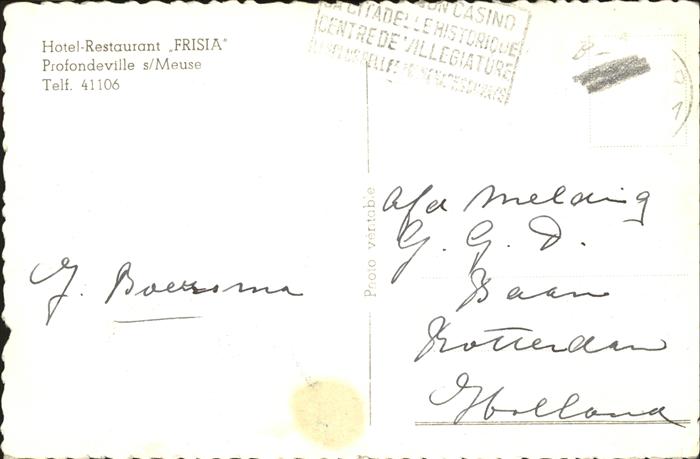 Hotel-Restaurant „FRISIA"
Profondeville s/Meuse
Telf. 41106
SON CASINO
SA CITADELLE HISTORIQUE
CENTRE DE VILLEGIATURE
Photo véritable
Afd Melding
G. G. D.
Baan
Rotterdam
Holland
J. Boersma